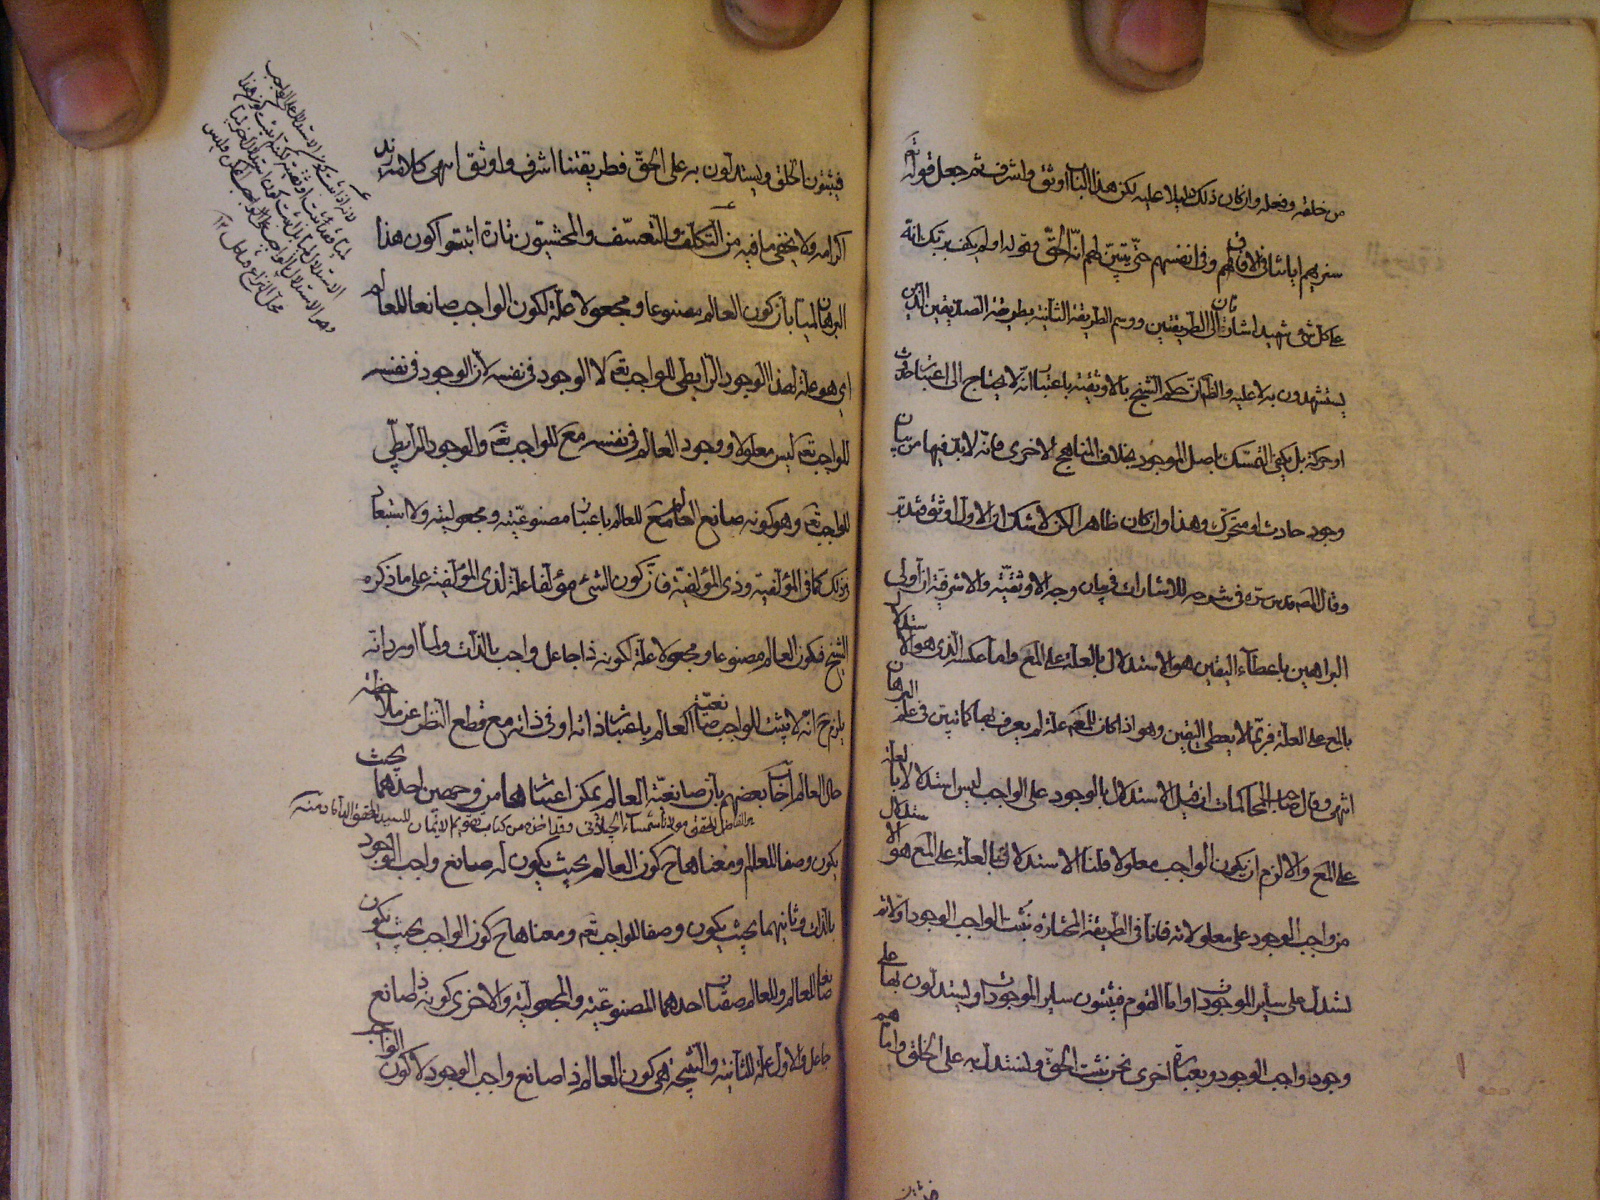 من خلقه وفعله وان كان ذلك دليلا عليه لكن هذا الباب اوثق واشرف ثم جعل قوله تعم
سنريهم اياتنا فى الافاق وفى انفسهم حتى يتبيّن لهم انّه الحقّ وقوله اولم يكف بربّك انّه
على كل شئ شهيد اشارتان الى الطريقتين ووسم الطريقة الثانية بطريقة الصديقين الذين
يستشهدون به لا عليه والظ انّ حكم الشيخ بالاوثقية باعتبار انّه لا يحتاج الى اعتبار حدوث
او حركة بل يكفى التمسك باصل الموجود بخلاف المناهج الاخرى فانّه لا بدّ فيها من بيان
وجود حادث او متحرّك وهذا وان كان ظاهرا لكن لا شك ان الاول اوثق فتدبر
وقال المص قدس سره فى شرحه للاشارات فى بيان وجه الاوثقيّة والاشرفيّة ان اولى
البراهين باعطاء اليقين هو الاستدلال بالعلة على المع واما عكسه الذى هو الاستدلال
بالمع على العلة فربّما لا يعطى اليقين وهو اذا كان للمع علة لم يعرف بها كما تبيّن فى علم البرهان
انتهى وقال صاحب المحاكمات ان قيل الاستدلال بالوجود على الواجب ليس استدلالا بالعلة
على المع والا لزم ان يكون الواجب معلولا قلنا الاستدلال بالعلة على المع هو الاستدلال
من واجب الوجود على معلولاته فانّا فى الطريقة المختارة نثبت الواجب الوجود اولا ثم
نستدلّ على ساير الموجودات واما القوم فيثبتون ساير الموجودات ويستدلّون بها على
وجود واجب الوجود وبعبارة اخرى نحن نثبت الحقّ ونستدلّ به على الخلق واما هم
فيثبتون الخلق ويستدلّون به على الحقّ فطريقتنا اشرف واوثق انتهى كلامه زيد
اكرامه ولا يخفى ما فيه من التكلّف والتعسّف والمحشّون تارة اثبتوا كون هذا
البرهان لميّا بان كون العالم مصنوعا ومجعولا علّة لكون الواجب صانعا للعالم
اى هو علة لهذا الوجود الرابطى للواجب تعم لا الوجود فى نفسه لان الوجود فى نفسه
للواجب تعم ليس معلولا ووجود العالم فى نفسه مع للواجب تعم والوجود الرابطىّ
للواجب تعم وهو كونه صانع العالم مع للعالم باعتبار مصنوعيّته ومجعوليته ولا استبعاد
فى ذلك كما فى المؤلّفية وذى المؤلفيّة فان كون الشئ مؤلّفا علة لذى المؤلّفية على ما ذكره
الشيخ فكون العالم مصنوعا ومجعولا علّة لكونه ذا جاعل واجب بالذات ولمّا اورد انّه
يلزم ح انّه لا يثبت للواجب صانعيّة العالم باعتبار ذاته او فى ذاته مع قطع النظر عن ملاحظة
حال العالم اجاب بعضهم بان صانعيّة العالم يمكن اعتبارها من وجهين احدهما بحيث
يكون وصفا للعالم ومعناها ح كون العالم بحيث يكون له صانع واجب الوجود
بالذات وثانيهما بحيث يكون وصفا للواجب تعم ومعناها ح كون الواجب بحيث يكون
صانعا للعالم وللعالم صفتان احدهما المصنوعيّة والمجعولية والاخرى كونه ذا صانع
جاعل والاول علة للثانية والنتيجة هى كون العالم ذا صانع واجب الوجود لا كون الواجب